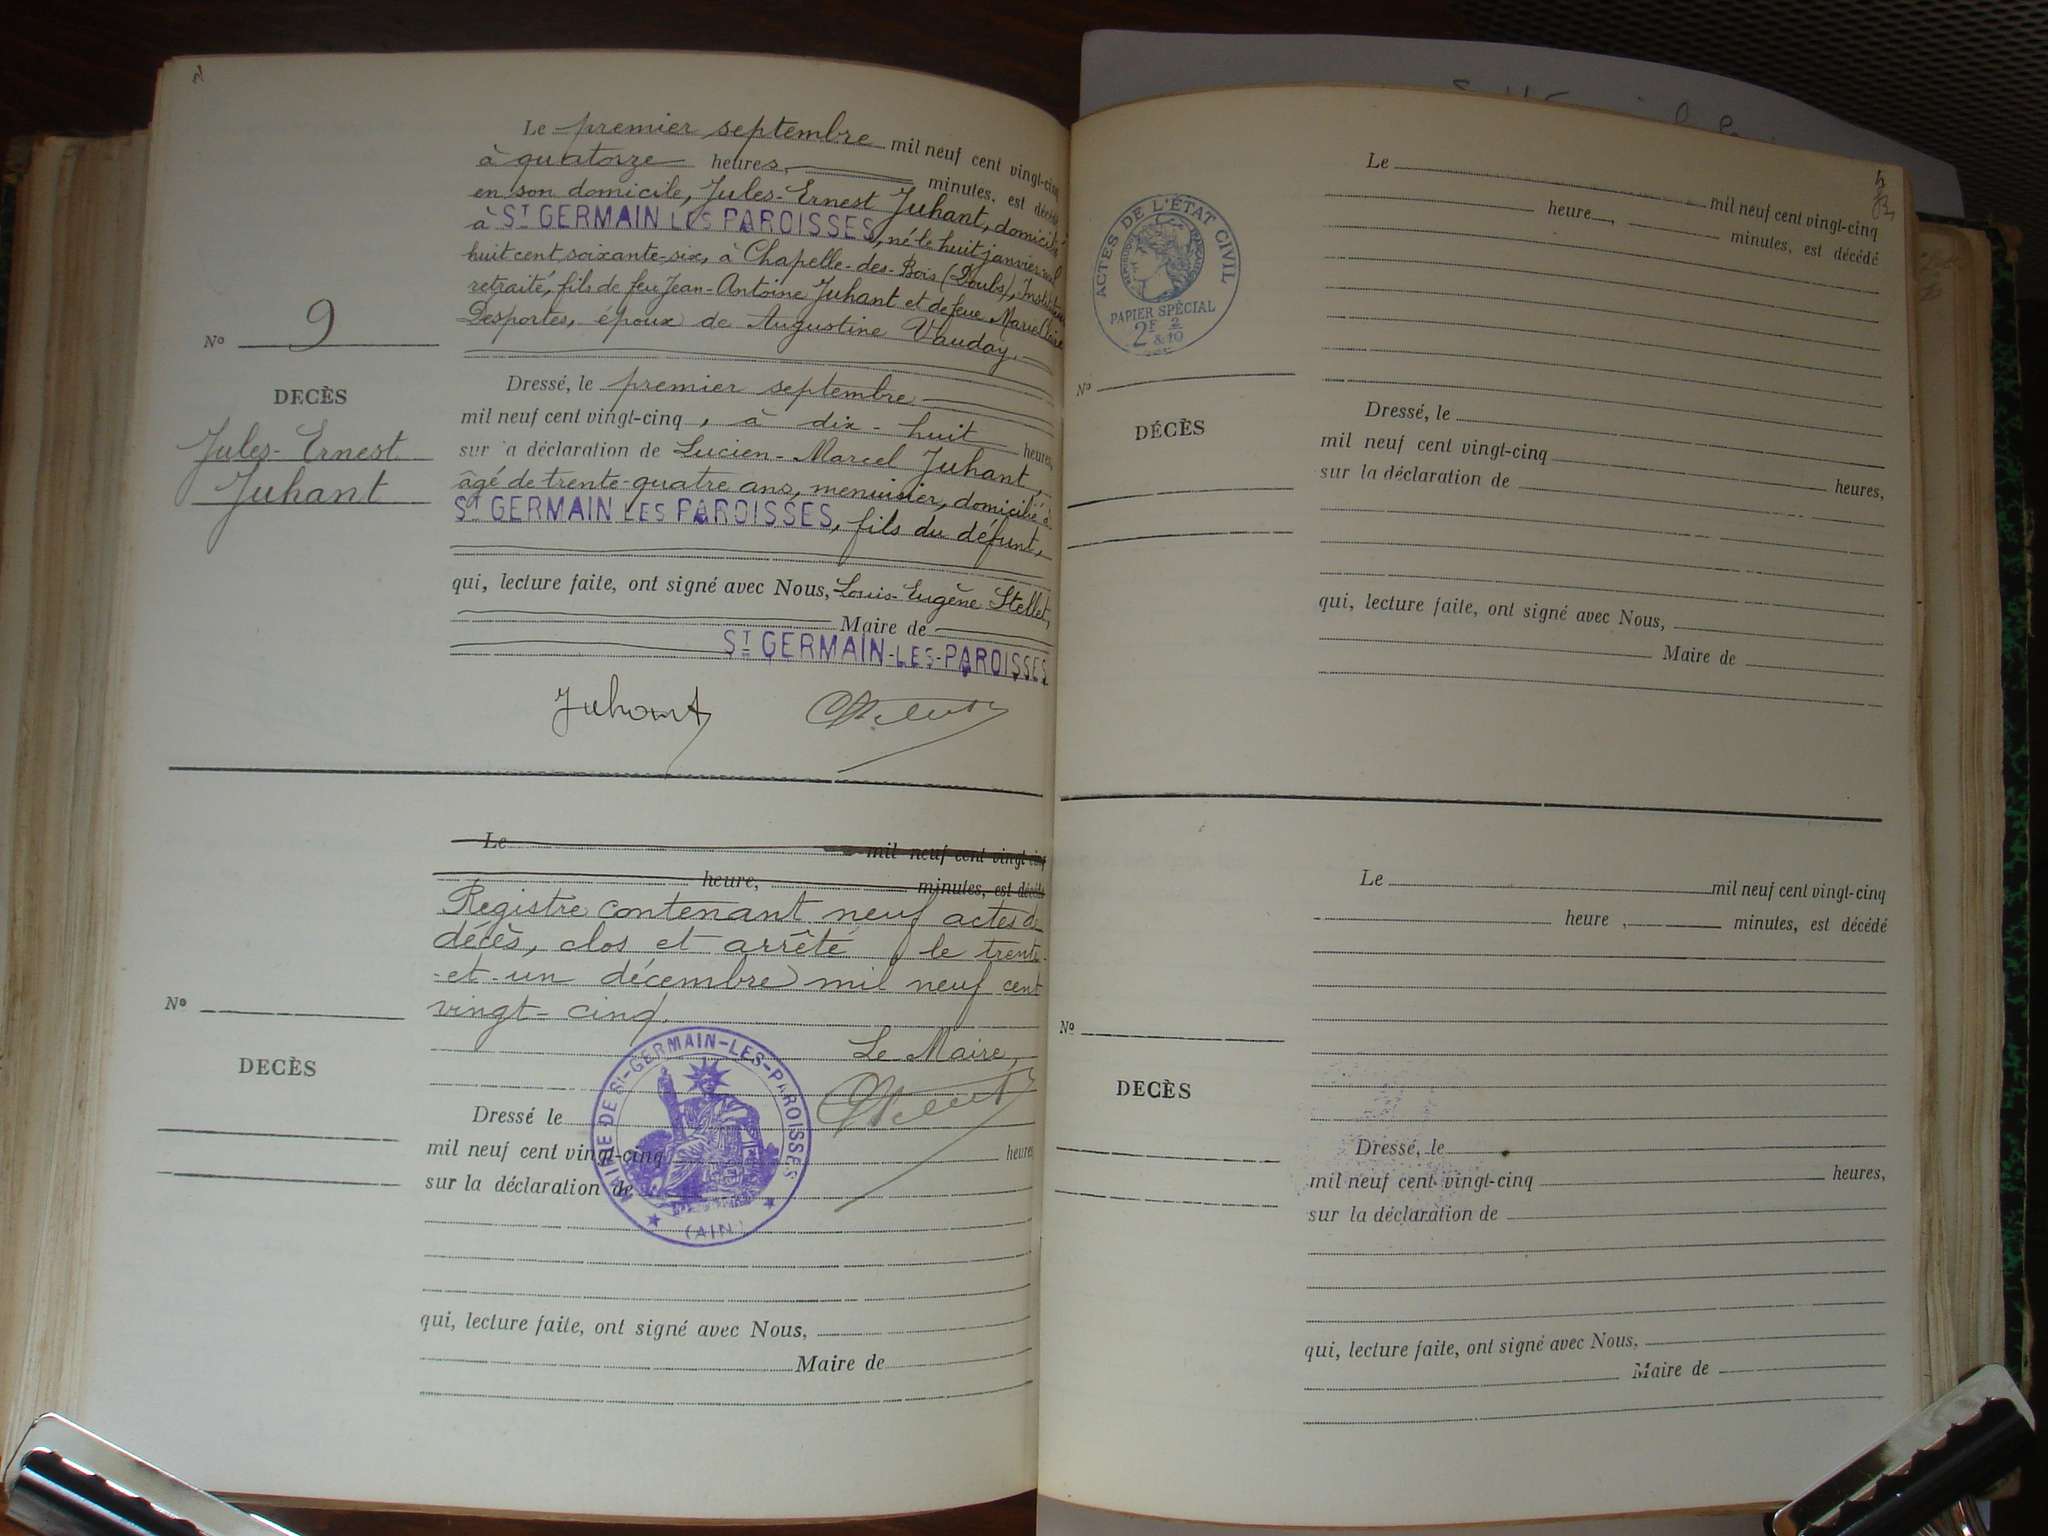 Le premier septembre mil neuf cent vingt-cinq
à quatorze heures, minutes, est décédé
en son domicile, Jules-Ernest Juhant, domicilié
à ST GERMAIN LES PAROISSES, né le huit janvier mil
huit cent soixante-six, à Chapelle-des-Bois (Doubs), Instituteur
retraité, fils de feu Jean-Antoine Juhant et de feue Marie Claire
Desportes, époux de Augustine Vauday.
No 9
DECÈS
Jules-Ernest
Juhant
Dressé, le premier septembre
mil neuf cent vingt-cinq, à dix-huit heures,
sur a déclaration de Lucien-Marcel Juhant,
âgé de trente-quatre ans, menuisier, domicilié à
ST GERMAIN LES PAROISSES, fils du défunt,
qui, lecture faite, ont signé avec Nous, Louis-Eugène Stellet,
Maire de
ST GERMAIN-LES-PAROISSES
Juhant
Le mil neuf cent vingt-cinq
heure, minutes, est décédé
Registre contenant neuf actes de
décès, clos et arrêté le trente-
-et-un décembre mil neuf cent
vingt-cinq.
Le Maire,
No
DECÈS
MAIRIE DE ST-GERMAIN-LES-PAROISSES
(AIN)
Dressé le
mil neuf cent vingt-cinq heures
sur la déclaration de
qui, lecture faite, ont signé avec Nous,
Maire de
Le mil neuf cent vingt-cinq
heure, minutes, est décédé
ACTES DE L'ÉTAT CIVIL
RÉPUBLIQUE FRANÇAISE
PAPIER SPÉCIAL
2F 2
& 10
No
DÉCÈS
Dressé, le
mil neuf cent vingt-cinq heures,
sur la déclaration de
qui, lecture faite, ont signé avec Nous,
Maire de
Le mil neuf cent vingt-cinq
heure, minutes, est décédé
No
DECÈS
Dressé, le
mil neuf cent vingt-cinq heures,
sur la déclaration de
qui, lecture faite, ont signé avec Nous,
Maire de